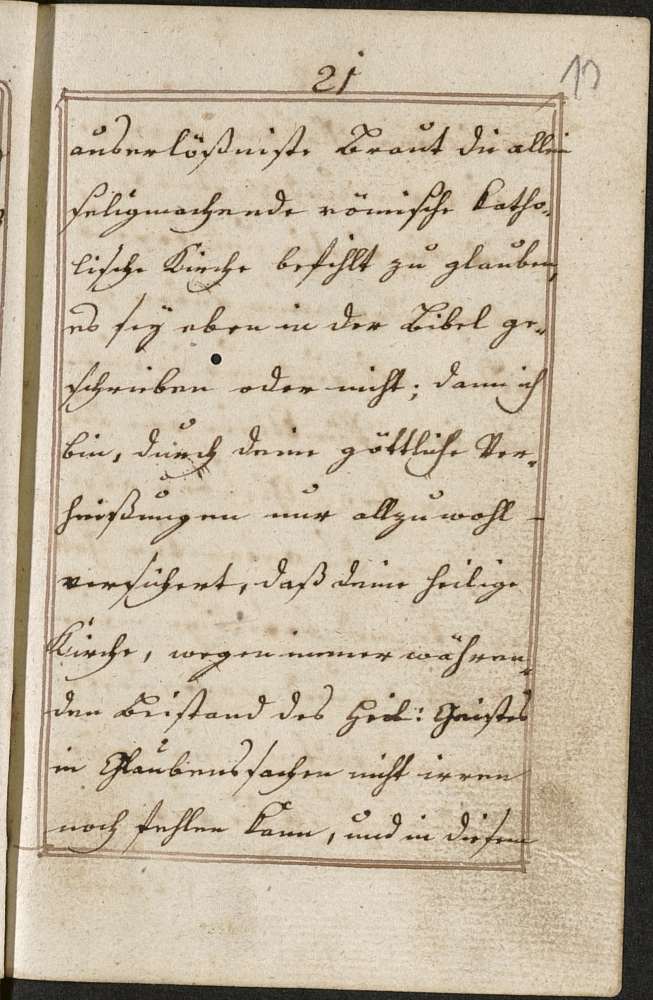 21
auserlößniste Braut die allein
seligmachende römische Catho-
lische Kirche befihlt zu glauben,
es sey eben in der Bibel ge-
schrieben oder nicht; dann ich
bin, durch deine göttliche Ver-
heißungen nur allzuwohl -
versichert, daß deine heilige
Kirche, wegen immer währen-
den Beistand des Heil: Geistes
in Glaubenssachen nicht irren
noch fehlen kann, und in diesem